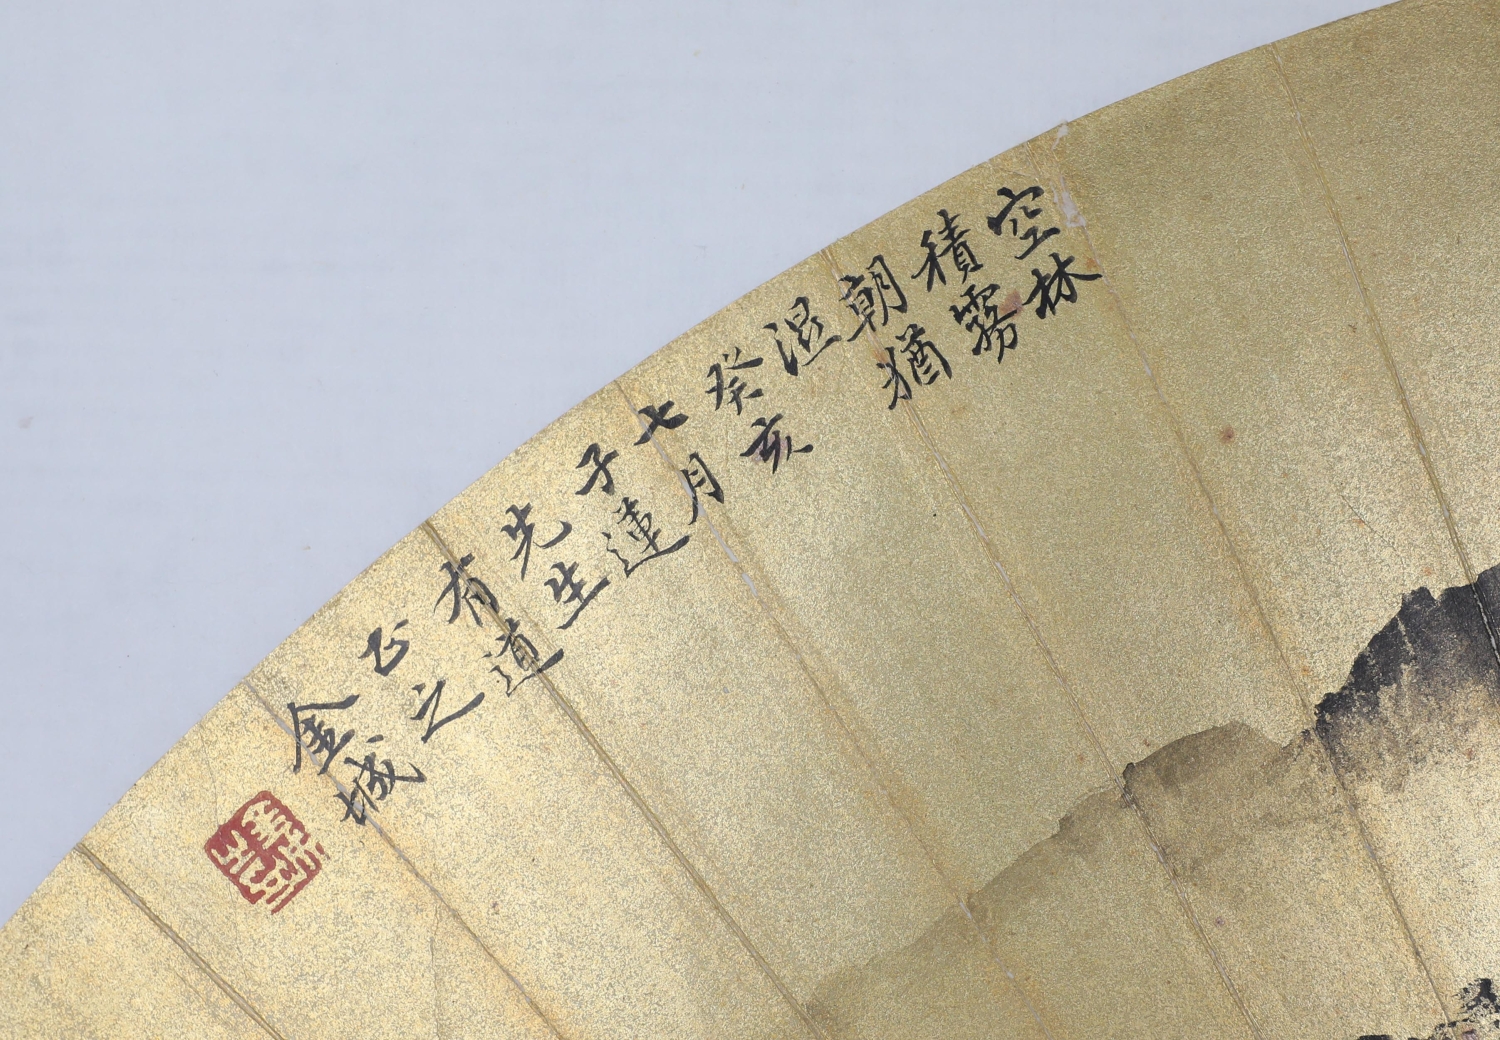 空林
積霧
朝猶
湿
癸亥
七月
子蓮
先生
有道
正之
金城